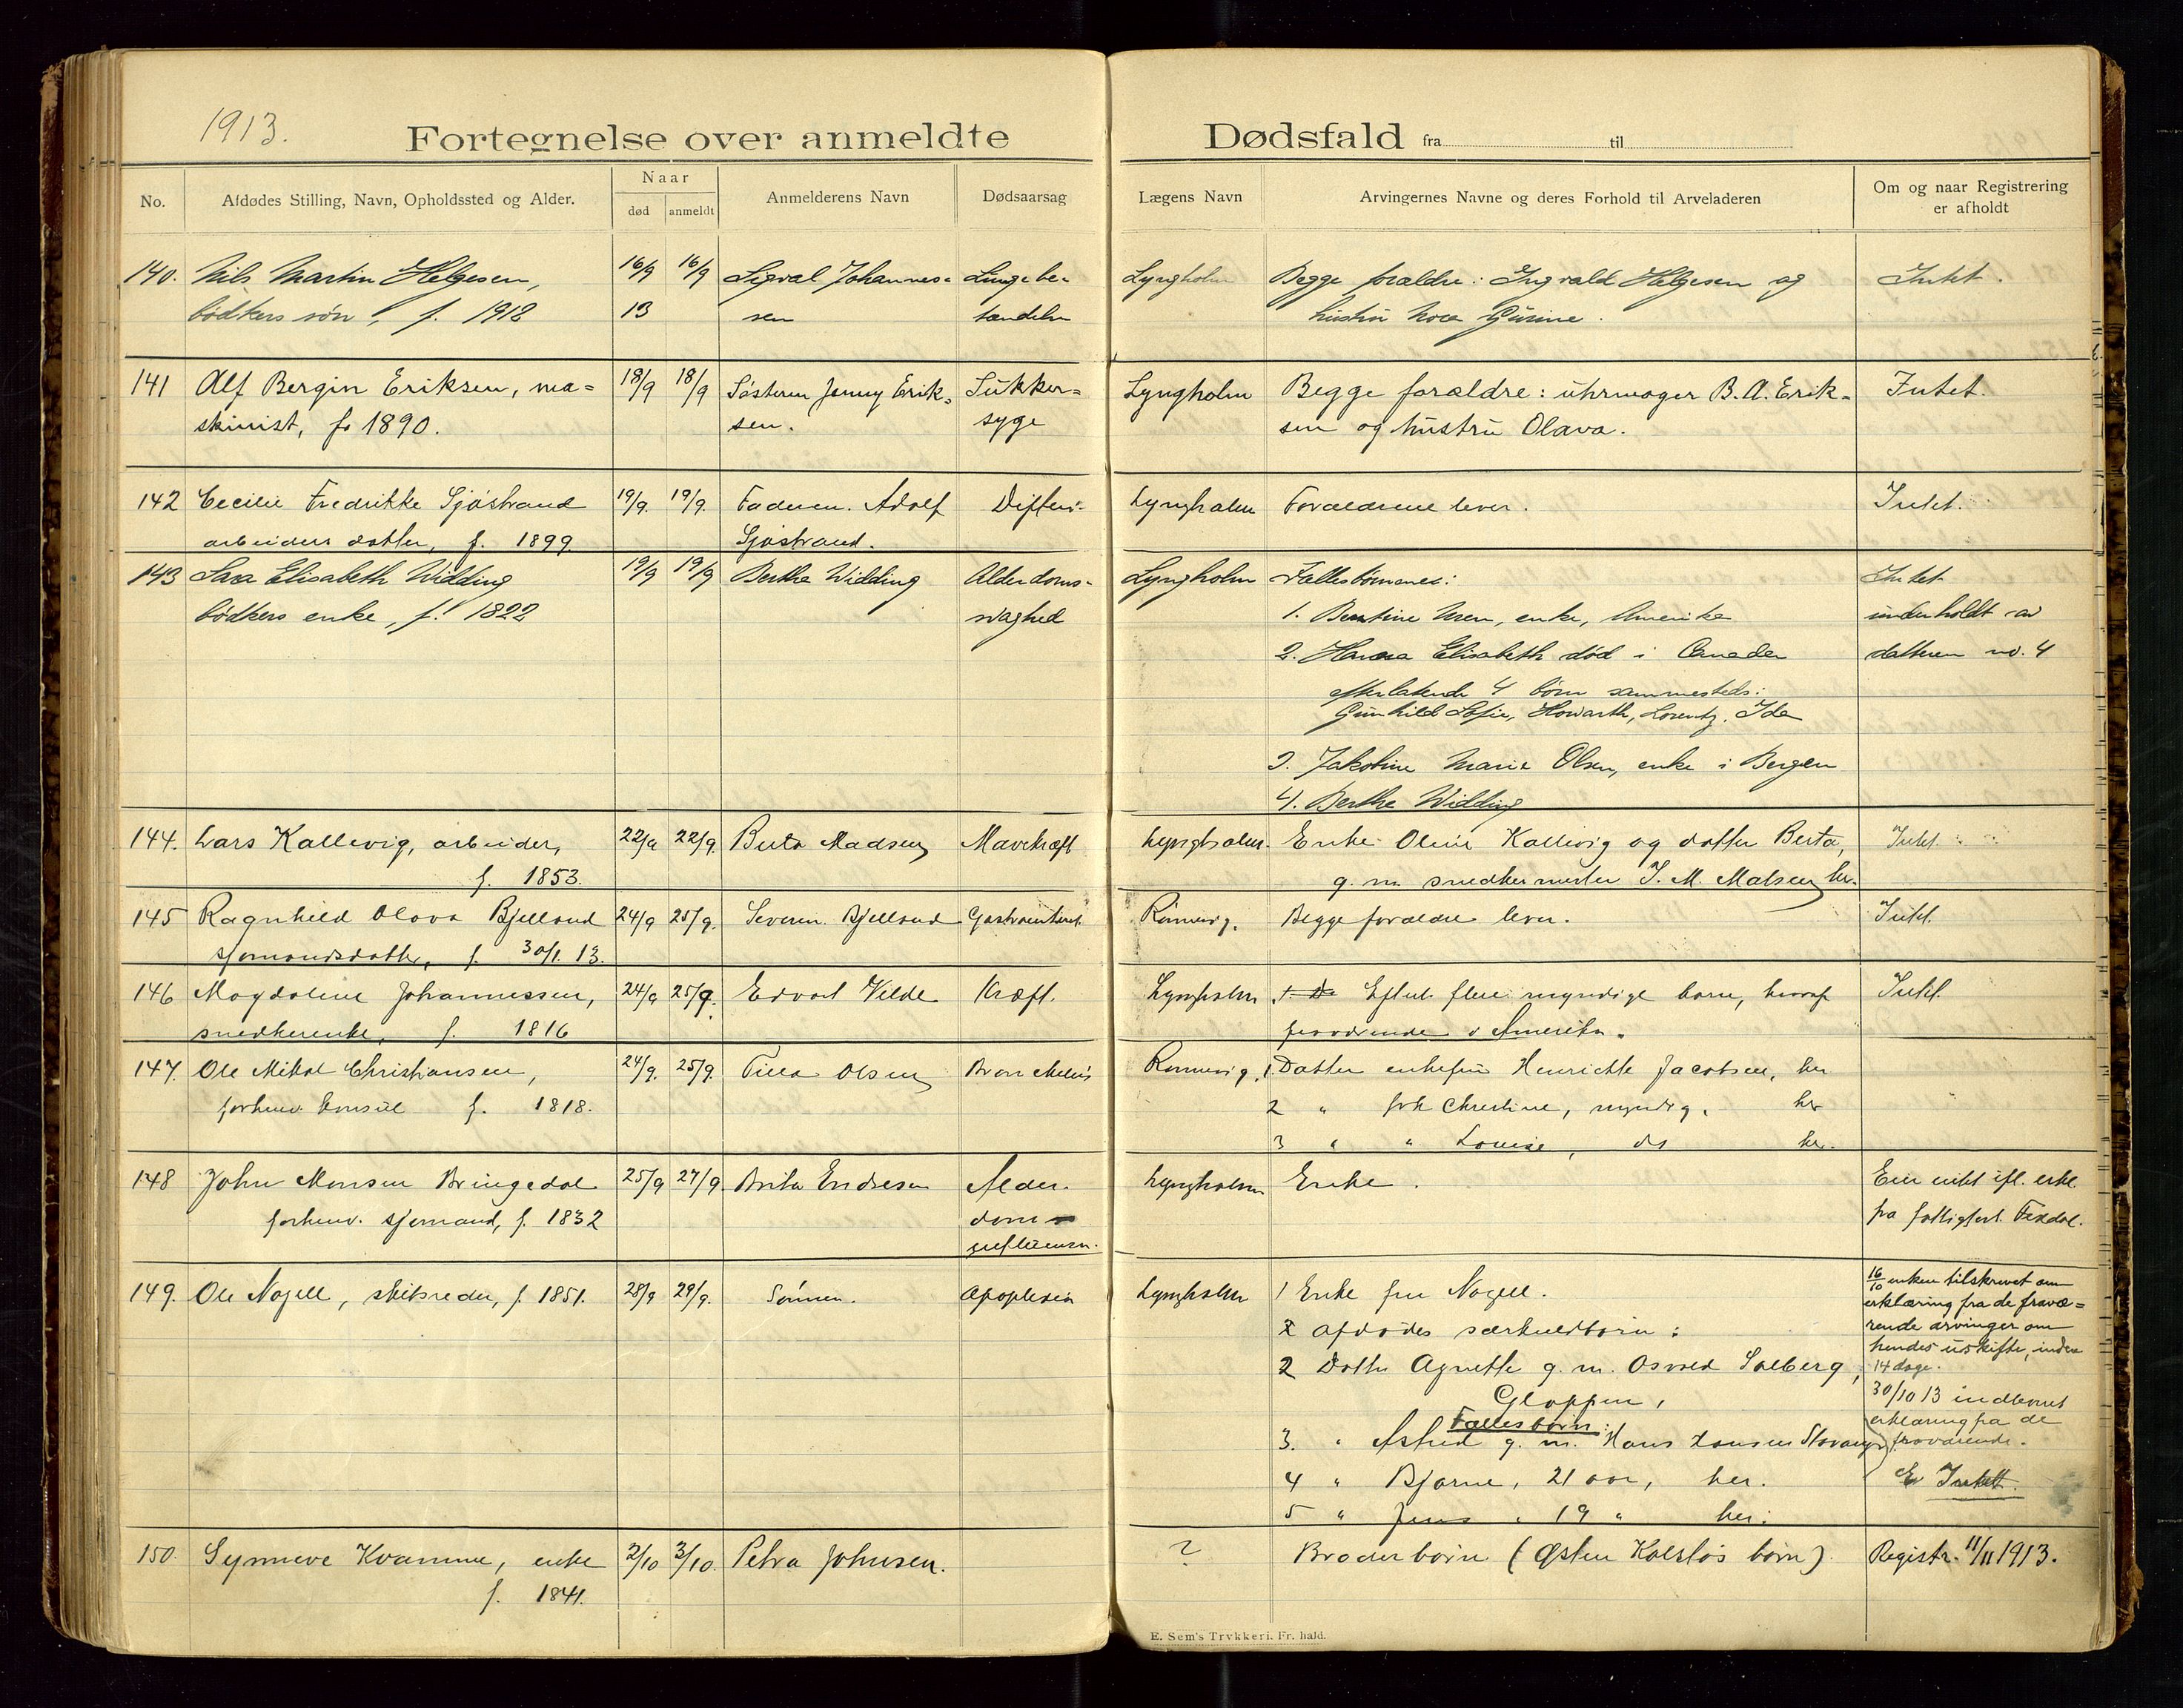 1913.
Fortegnelse over anmeldte Dødsfald fra til
No. Afdødes Stilling, Navn, Opholdssted og Alder. Naar død anmeldt Anmelderens Navn Dødsaarsag Lægens Navn Arvingernes Navne og deres Forhold til Arveladeren Om og naar Registrering er afholdt
140. Nils Martin Helgesen, 16/9 16/9 Sigval Johannes= Lungebe- Lyngholm Begge forældre: Ingvald Helgesen og Intet.
bødkers søn, f. 1912 13 sen tændelse hustru Gurine.
141 Alf Bergin Eriksen, ma= 18/9 18/9 Søsteren Jenny Erik= Sukker= Lyngholm Begge forældre: uhrmager B. A. Erik= Intet.
skinist, f. 1890. sen. syge sen og hustru Olava.
142 Cecilie Fredrikke Sjøstrand 19/9. 19/9. Faderen. Adolf Difteri. Lyngholm Forældrene lever. Intet.
arbeiders datter, f. 1899. Sjøstrand.
143 Sara Elisabeth Widding 19/9 19/9 Berthe Widding Alderdoms- Lyngholm Fællesbørnene: Intet
bødkers enke, f. 1822 svaghed 1. Bentine enke, Amerika underholdt av
2. Elisabeth død i Canada datteren no. 4
efterlatende 4 børn sammesteds:
Gunhild Sofie, Howarth, Lorentz, Ida
3. Jakobine Marie Olsen, enke i Bergen
4. Berthe Widding
144. Lars Kallevig, arbeider, 22/9 22/9. Berta Madsen Mavekræft Lyngholm. Enke Oline Kallevig og datter Berta, Intet.
f. 1853. g. m. snedkermester J. M. Madsen her.
145 Ragnhild Olava Bjelland 24/9 25/9. Severin Bjelland Gastroenterit. Rønnevig. Begge forældre lever. Intet.
sjømandsdatter, f. 30/1. 13.
146 Magdalene Johannessen, 24/9 25/9. Edvart Velde Kræft. Lyngholm Efterl. flere myndige børn, hvoraf Intet.
snedkerenke, f. 1816 fraværende i Amerika.
147. Ole Mikal Christiansen, 24/9. 25/9. Olsen Bronchitis Rønnevig. 1 Datter enkefru Henriette Jacobsen, her
forhenv. konsul f. 1818. 2 " frk Christine, myndig, her
3 " " Louise, do her.
148 John Monsen Bringedal 25/9 27/9. Brita Endresen Alder- Lyngholm Enke. Eier intet ifl. erkl.
forhenv. sjømand, f. 1832 dom fra fattigforst.
influensa.
149. Ole Nagell, skibsreder, f. 1851. 28/9 29/9. Sønnen. Apoplexia Lyngholm 1 Enke fru Nagell. 16/10 enken tilskrevet om
erklæring fra de fravæ=
2 afdødes særkuldbørn: rende arvinger om
hendes uskifte, inden
2 Datter Agnette g. m. Osvald Solberg, 14 dage.
Gloppen, 30/10 13 indleveret
Fællesbørn: erklæring fra de
3. " Astrid g. m. Hans Hansen Stavanger fraværende.
4 " Bjarne, 21 aar, her. Intet.
5 " Jens, 19 " her.
150. Synneve Kvamme, enke 2/10 3/10. Petra Johnsen. ? Broderbørn (Østen Kolstøs børn) Registr. 11/11 1913.
f. 1841.
E. Sem's Trykkeri. Fr. hald.